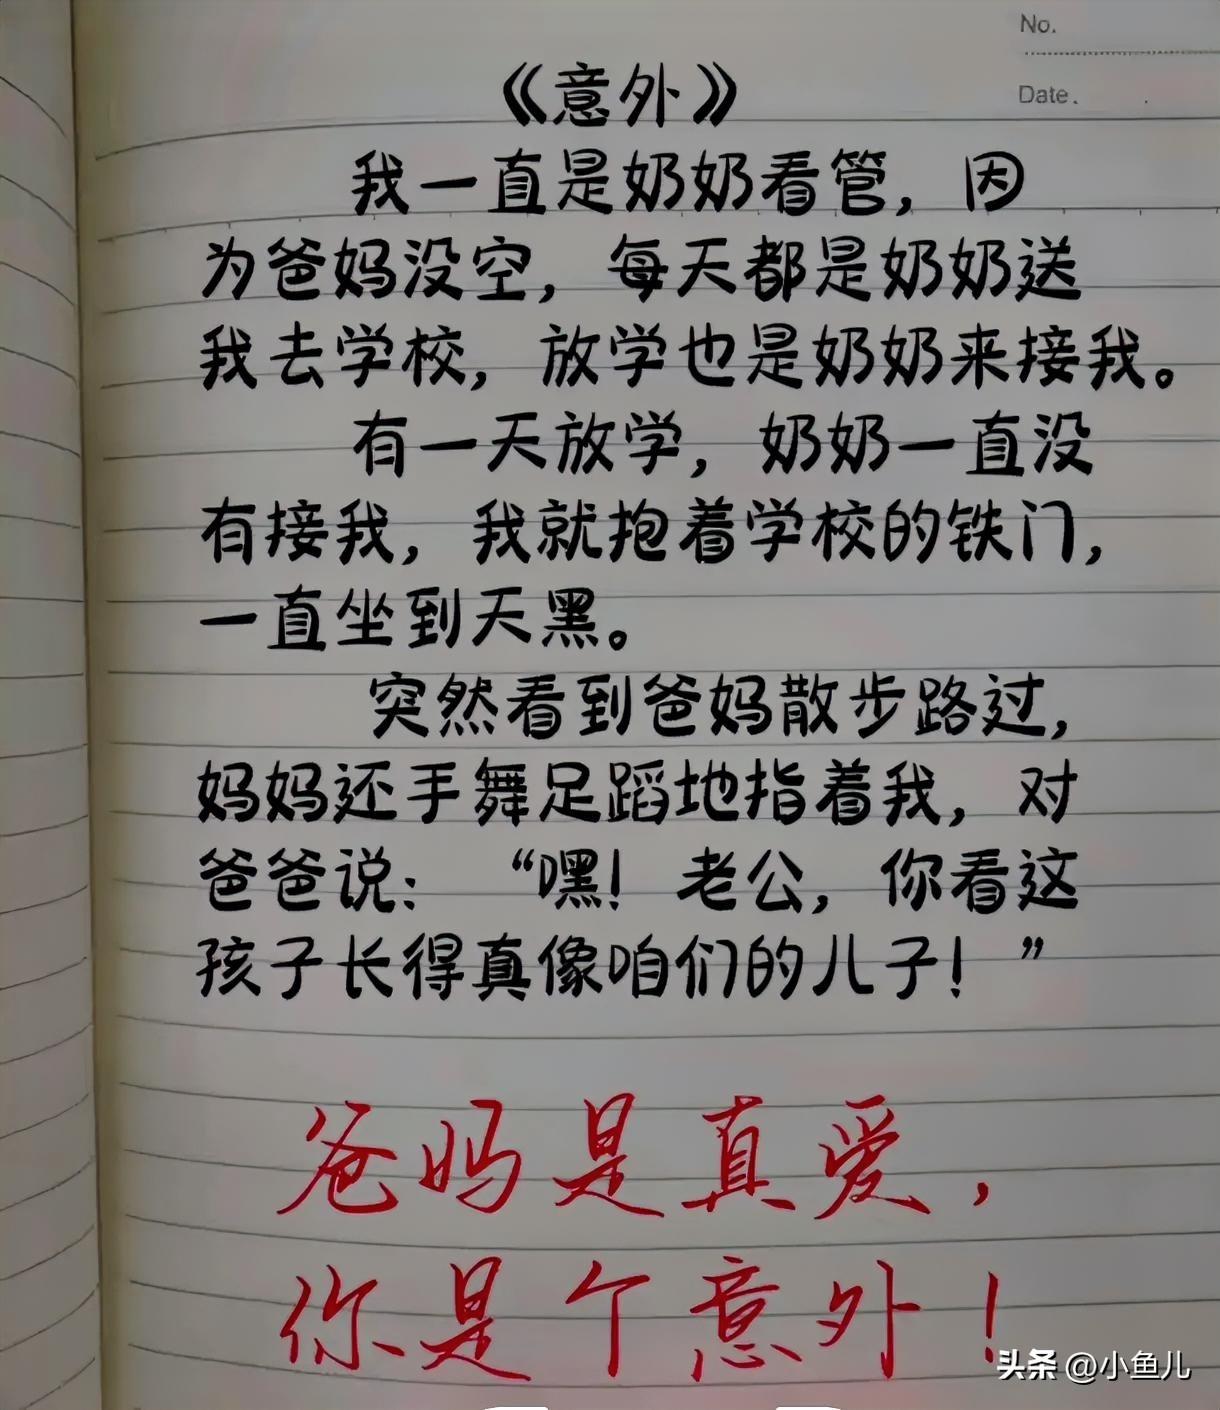 No.
Date.
《意外》
我一直是奶奶看管，因
为爸妈没空，每天都是奶奶送
我去学校，放学也是奶奶来接我。
有一天放学，奶奶一直没
有接我，我就抱着学校的铁门，
一直坐到天黑。
突然看到爸妈散步路过，
妈妈还手舞足蹈地指着我，对
爸爸说：“嘿！老公，你看这
孩子长得真像咱们的儿子！”
爸妈是真爱，
你是个意外！
头条 @小鱼儿